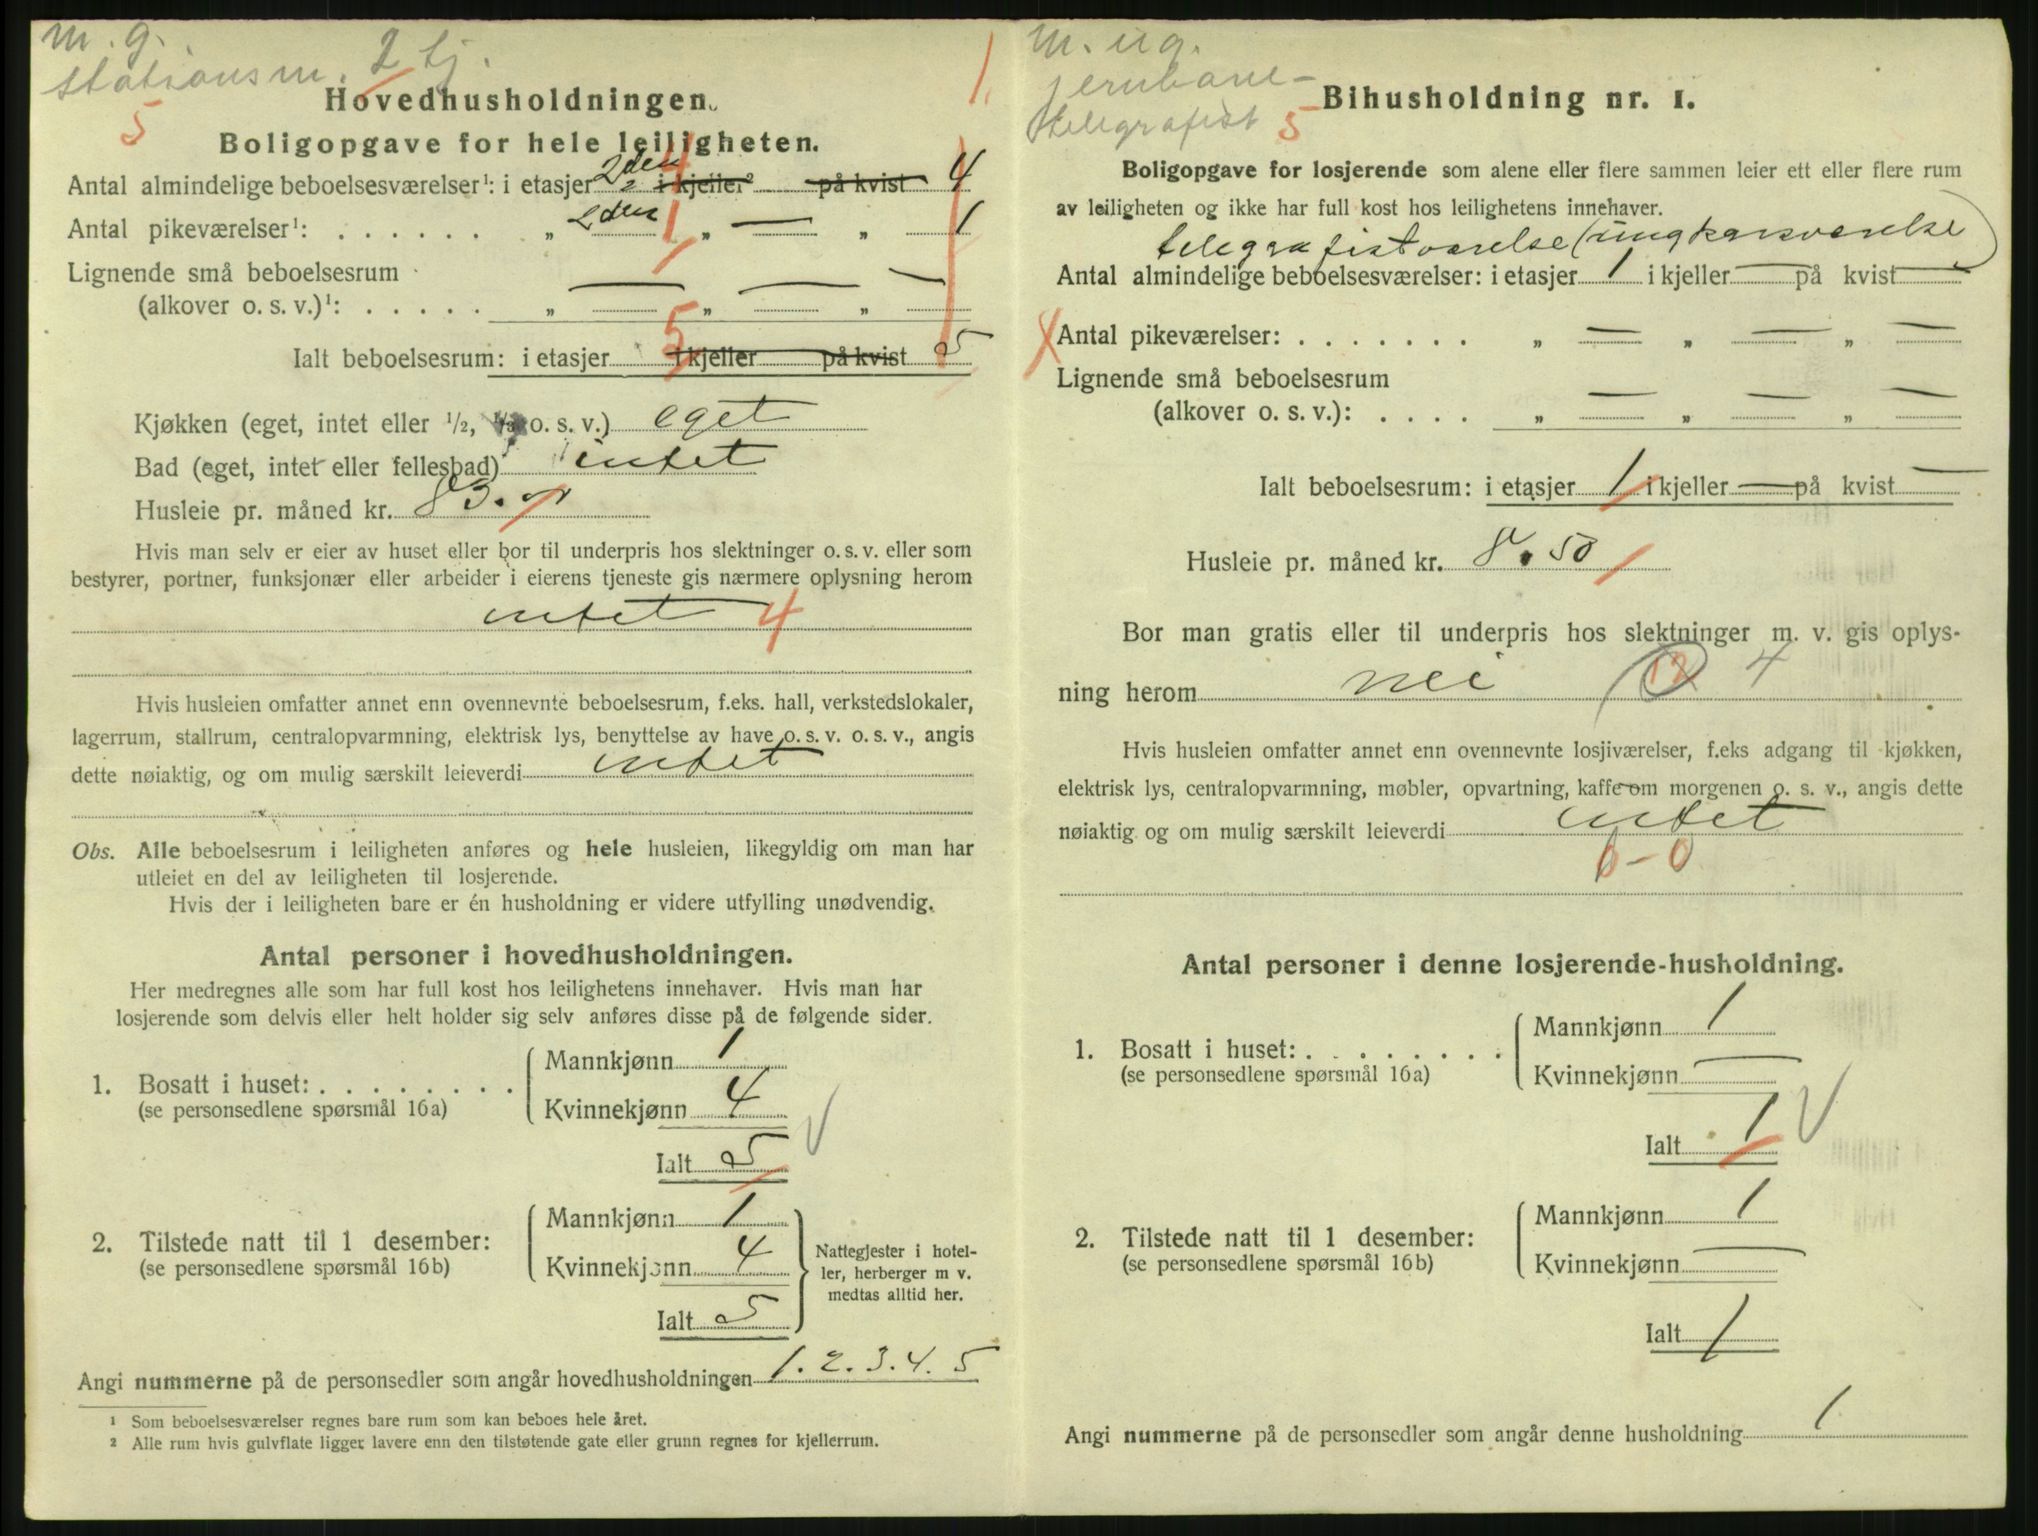 m. g.
stationsm. 2 tj.
5
1.
Hovedhusholdningen.
Boligopgave for hele leiligheten.
Antal almindelige beboelsesværelser¹: i etasjer 2den i kjeller² på kvist 4
4
Antal pikeværelser¹: . . . . . . „ 2den 1 „ — „ 1
Lignende små beboelsesrum
(alkover o. s. v.)¹: . . . . . „ — „ — „ —
5
Ialt beboelsesrum: i etasjer i kjeller på kvist 5
Kjøkken (eget, intet eller ½, ⅓ o. s. v.) eget
Bad (eget, intet eller fellesbad) intet
Husleie pr. måned kr. 83.
Hvis man selv er eier av huset eller bor til underpris hos slektninger o. s. v. eller som
bestyrer, portner, funksjonær eller arbeider i eierens tjeneste gis nærmere oplysning herom
intet 4
Hvis husleien omfatter annet enn ovennevnte beboelsesrum, f.eks. hall, verkstedslokaler,
lagerrum, stallrum, centralopvarmning, elektrisk lys, benyttelse av have o. s. v. o. s. v., angis
dette nøiaktig, og om mulig særskilt leieverdi intet
Obs. Alle beboelsesrum i leiligheten anføres og hele husleien, likegyldig om man har
utleiet en del av leiligheten til losjerende.
Hvis der i leiligheten bare er én husholdning er videre utfylling unødvendig.
Antal personer i hovedhusholdningen.
Her medregnes alle som har full kost hos leilighetens innehaver. Hvis man har
losjerende som delvis eller helt holder sig selv anføres disse på de følgende sider.
Mannkjønn 1
1. Bosatt i huset: . . . . . . . .
(se personsedlene spørsmål 16a)
Kvinnekjønn 4
Ialt 5
Mannkjønn 1
2. Tilstede natt til 1 desember:
(se personsedlene spørsmål 16b)
Kvinnekjønn 4
Ialt 5
Nattegjester i hotel-
ler, herberger m v.
medtas alltid her.
Angi nummerne på de personsedler som angår hovedhusholdningen 1. 2. 3. 4. 5
¹ Som beboelsesværelser regnes bare rum som kan beboes hele året.
² Alle rum hvis gulvflate ligger lavere enn den tilstøtende gate eller grunn regnes for kjellerrum.
m. ug.
jernbane-
telegrafist 5
Bihusholdning nr. 1.
Boligopgave for losjerende som alene eller flere sammen leier ett eller flere rum
av leiligheten og ikke har full kost hos leilighetens innehaver.
telegrafistværelse (ungkarsværelse)
Antal almindelige beboelsesværelser: i etasjer 1 i kjeller — på kvist —
Antal pikeværelser: . . . . . . . „ — „ — „ —
Lignende små beboelsesrum
(alkover o. s. v.): . . . . „ — „ — „ —
Ialt beboelsesrum: i etasjer 1 i kjeller — på kvist —
Husleie pr. måned kr. 8.50
Bor man gratis eller til underpris hos slektninger m. v. gis oplys-
ning herom nei 12 4
Hvis husleien omfatter annet enn ovennevnte losjiværelser, f.eks adgang til kjøkken,
elektrisk lys, centralopvarmning, møbler, opvartning, kaffe om morgenen o. s. v., angis dette
nøiaktig og om mulig særskilt leieverdi intet
0-0
Antal personer i denne losjerende-husholdning.
Mannkjønn 1
1. Bosatt i huset: . . . . . . . .
(se personsedlene spørsmål 16a)
Kvinnekjønn —
Ialt 1
Mannkjønn 1
2. Tilstede natt til 1 desember:
(se personsedlene spørsmål 16b)
Kvinnekjønn —
Ialt 1
Angi nummerne på de personsedler som angår denne husholdning 1